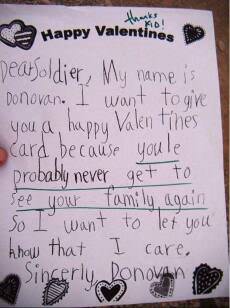 thanks
KID!
Happy Valentines
Dear Soldier, My name is
Donovan. I want to give
you a happy Valentines
card because youle
probably never get to
see your family again
So I want to let you
know that I care.
Sincerly, Donovan